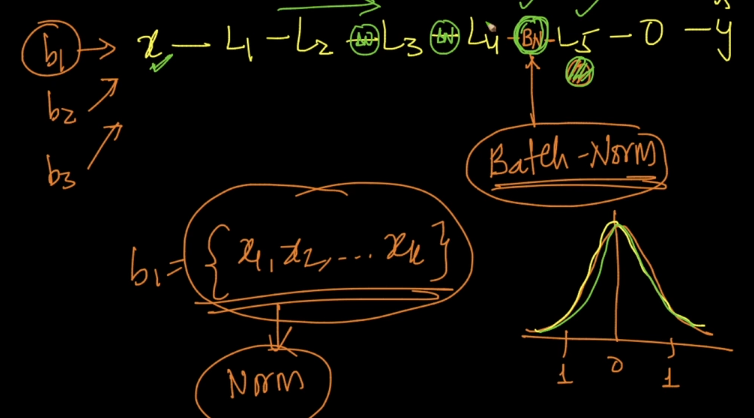 b1 → x — L1 — L2 — BN — L3 — BN — L4 — BN — L5 — O — y
b2
b3
Batch-Norm
b1 = { x1, x2, ... xk }
Norm
1 0 1